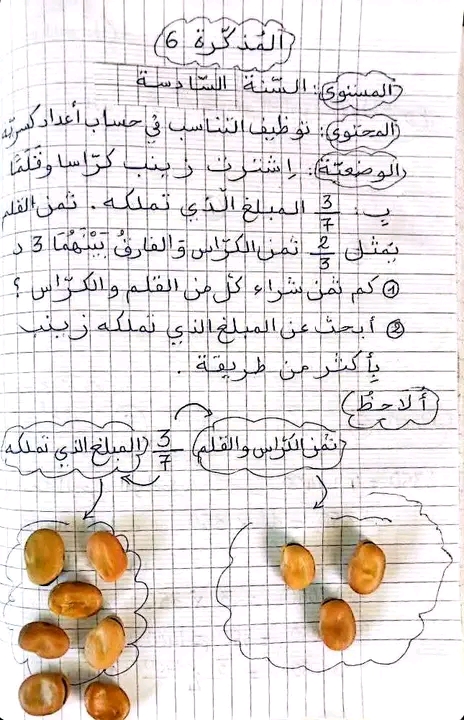 المُذكّرة 6
المستوى: السّنة السّادسة
المحتوى: توظيف التناسب في حساب أعداد كسريّة
الوضعيّة: اِشترت زينب كرّاسا وقَلَمًا
بِـ: 3/7 المبلغ الّذي تملكه. ثمن القلم
يمثّل 2/3 ثمن الكرّاس وَالفارقُ بَيْنَهُمَا 3 د
① كم ثمن شراء كلّ من القلم والكرّاس ؟
② أبحث عن المبلغ الذي تملكه زينب
بِأكثر من طريقة .
أُلَاحِظُ
ثمن الكرّاس والقلم 3/7 المبلغ الذي تملكه